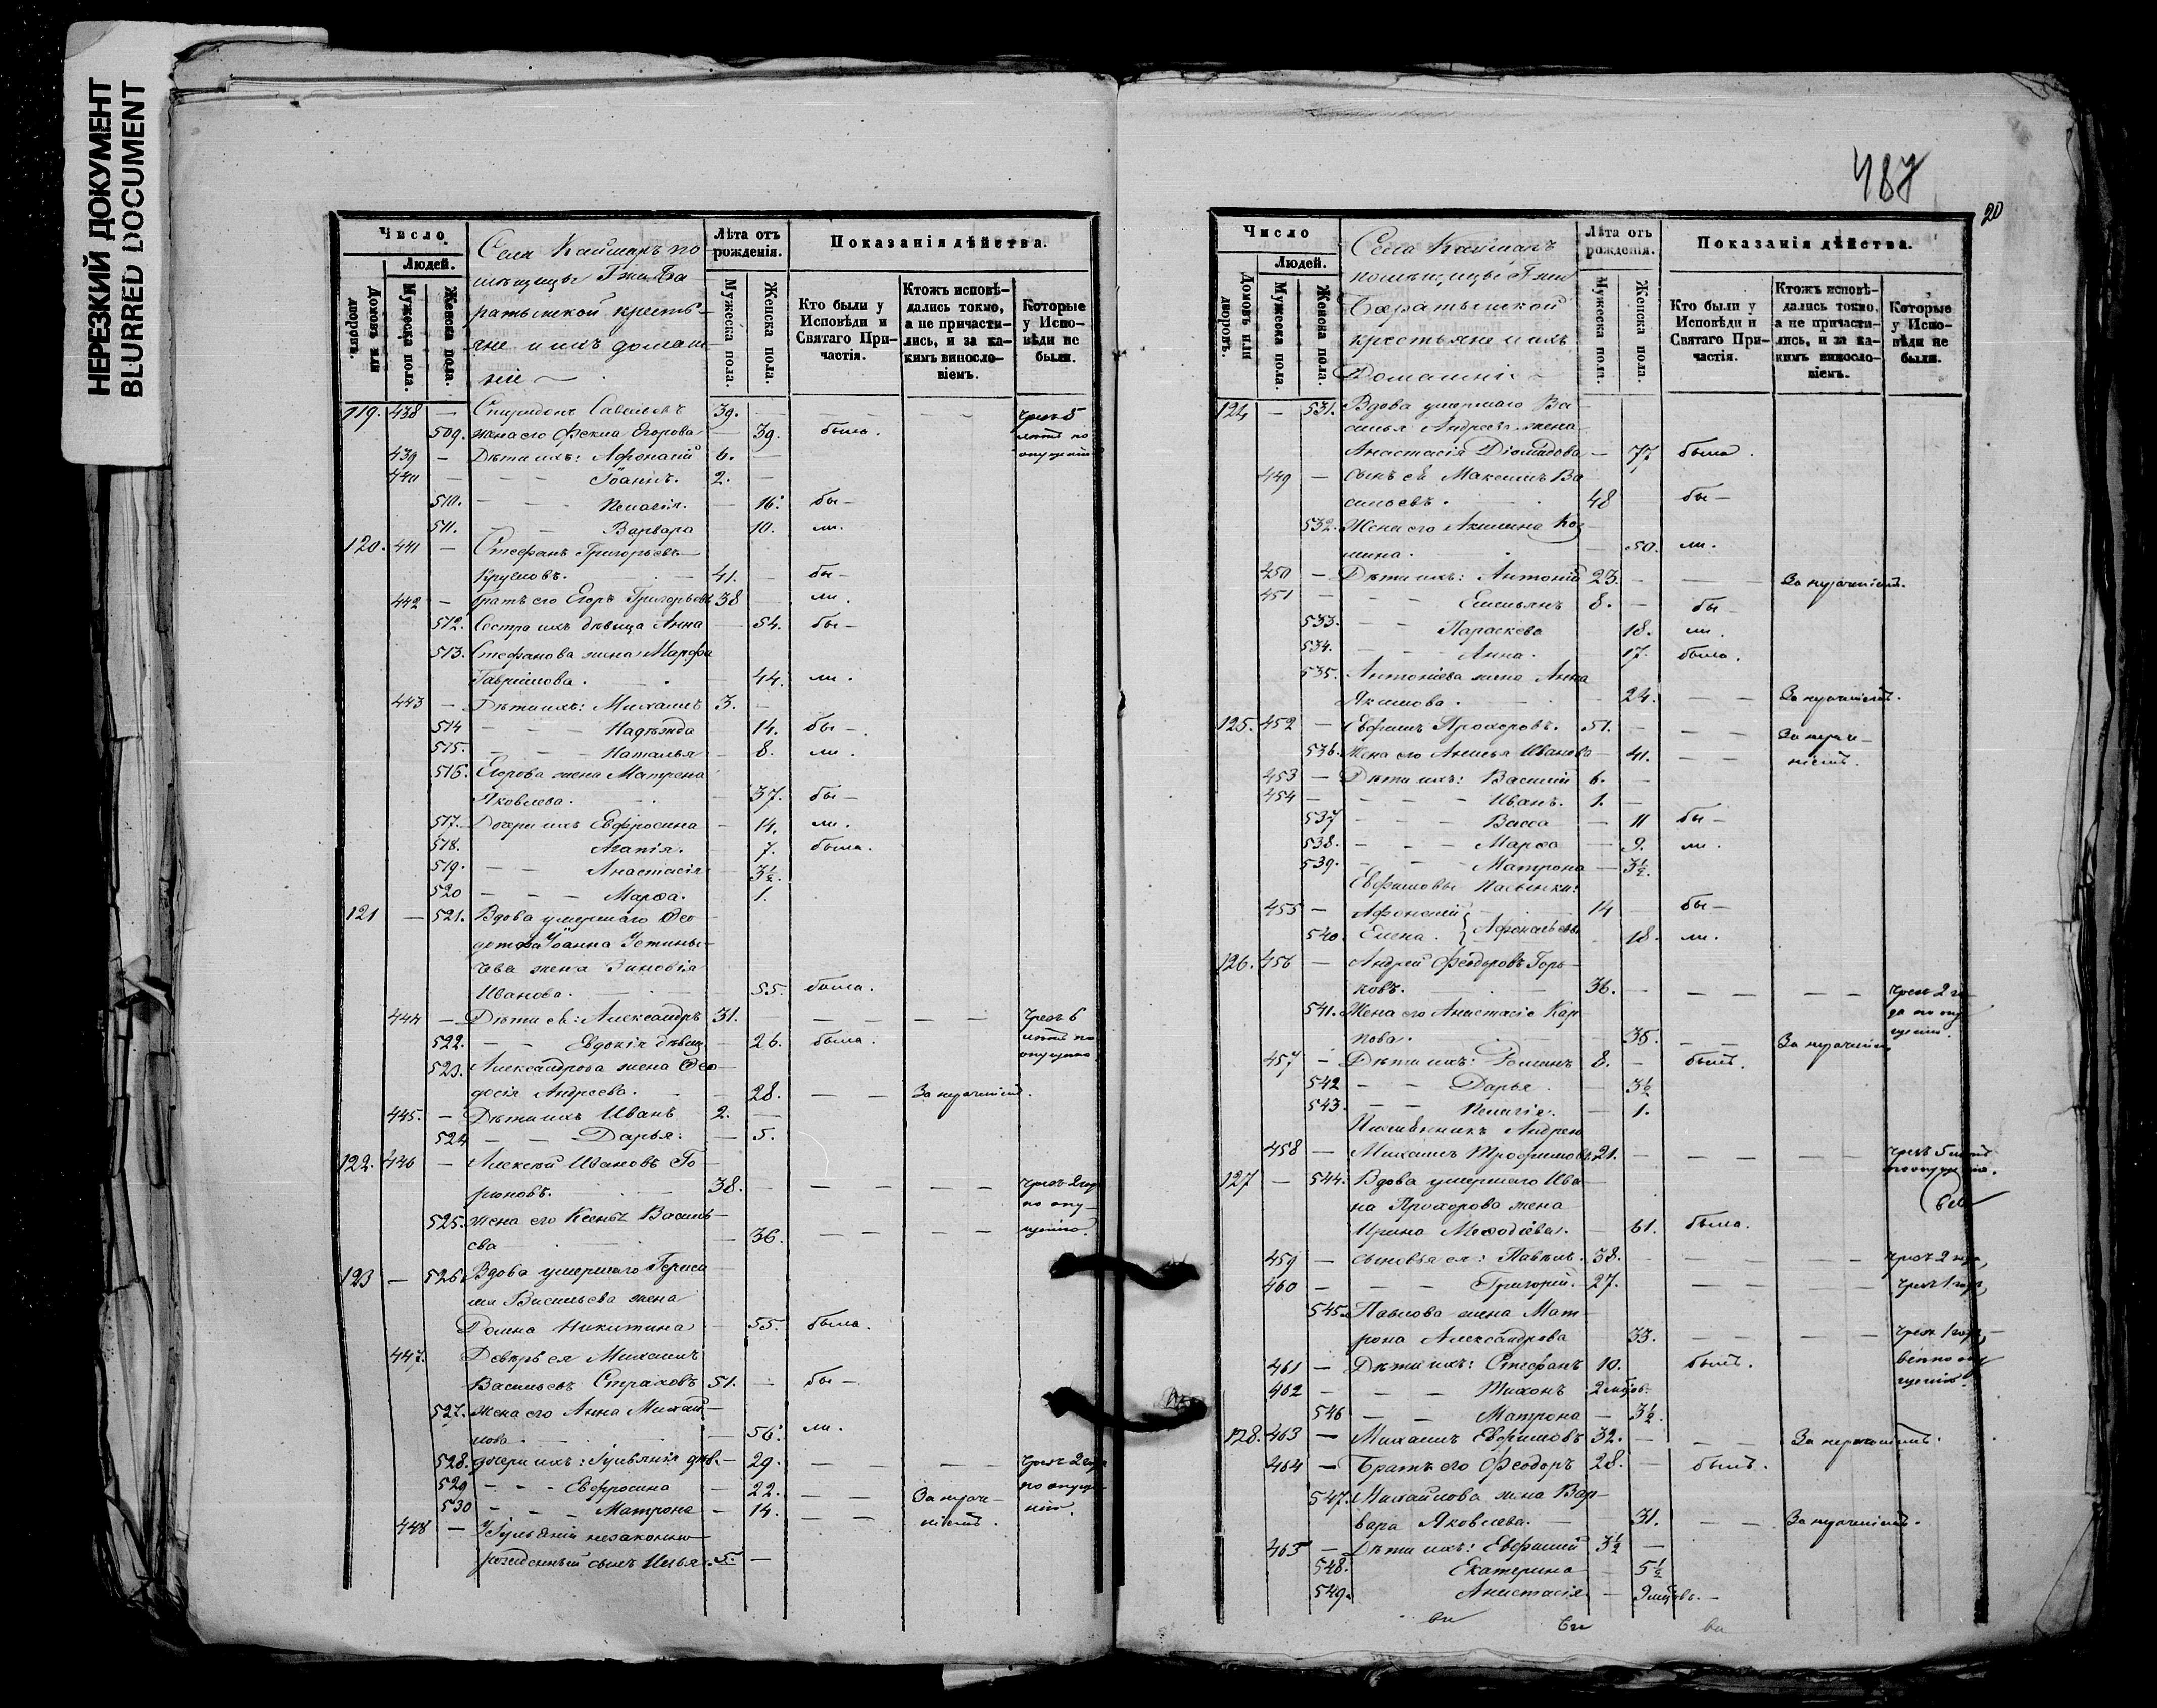 НЕРЕЗКИЙ ДОКУМЕНТ
BLURRED DOCUMENT
Число
Людей.
Домовъ или дворовъ.
Мужеска пола.
Женска пола.
Села Каймаръ по
мѣщицы Гжи Ба
ратынской кресть-
яне и ихъ домаш
ніе
Лѣта отъ рожденія.
Мужеска пола.
Женска пола.
Показанія дѣйства.
Кто были у Исповѣди и Святаго При-частія.
Ктожъ исповѣ-дались токмо, а не причасти-лись, и за ка-кимъ винословіемъ.
Которые у Испо-вѣди не были.
119. 438 — Спиридонъ Савельевъ 39. — — — Чрезъ 5
509. жена его Фекла Егорова — 39. была. лѣтъ по
439 — Дѣти ихъ: Афонасій 6. — опущенію
440 — — — Іоаннъ. 2. —
510. — — Пелагія. — 16. бы —
511. — — Варвара 10. ли.
120. 441 — Стефанъ Григорьевъ
Кругловъ. — 41. — бы —
442 — братъ его Егоръ Григорьевъ 38 — ли.
512. Сестра ихъ дѣвица Анна — 54. бы —
513. Стефанова жена Марфа
Гавріилова. — 44. ли.
443 — Дѣти ихъ: Михаилъ 3. —
514 — — — Надежда 14. бы —.
515. — — — Наталья — 8. ли.
516. Егорова жена Матрена
Яковлева. — 37. бы —
517. Дочери ихъ Евфросина — 14. ли.
518. Агапія. 7. была.
519. — — Анастасія — 3½.
520 — — — Марѳа. 1.
121 — 521. Вдова умершаго Ѳео
дотова Іоанна Устины-
чева жена Зиновія
Иванова. — 55. была.
444 — Дѣти ея: Александръ 31. — — — — Чрезъ 6
522. — — Евдокія дѣвиц. — 26. была. лѣтъ по
опущенію
523. Александрова жена Ѳео
досія Андреева. — 28. — — За нерачиіемъ.
445. — Дѣти ихъ Иванъ 2. —
524 — — Дарья. — 5.
122. 446 — Алексѣй Ивановъ Го-
рюновъ. — 38. — — — — — чрезъ 2 года
по опу-
525. жена его Ксенья Василь-
ева — 36. — — — — щенію.
123 — 526. Вдова умершаго Гераси
ма Васильева жена
Домна Никитина — 55. была.
447. Деверь ея Михаилъ
Васильевъ Страховъ 51. — бы —.
527. жена его Анна Михай-
лова — 56. ли.
528. дочери ихъ: Іуліянія дѣв. — 29. — — — — чрезъ 2 года
529 — — — Евфросина — 22. — — За нераче- по опуще-
530 — — Матрона — 14. — — ніемъ. нію.
448 — Іуліаніи незаконно
рожденный сынъ Илья 5. —
487
20
Число
Людей.
Домовъ или дворовъ.
Мужеска пола.
Женска пола.
Села Каймаръ
помѣщицы Гжи
Баратынской
крестьяне и ихъ
Домашніе
Лѣта отъ рожденія.
Мужеска пола.
Женска пола.
Показанія дѣйства.
Кто были у Исповѣди и Святаго При-частія.
Ктожъ исповѣ-дались токмо, а не причасти-лись, и за ка-кимъ винословіемъ.
Которые у Испо-вѣди не были.
124 — 531. Вдова умершаго Ва-
силья Андреева жена
Анастасія Діомидова — 77 была.
449 — сынъ ея Максимъ Ва
сильевъ. 48 бы —
532. Жена его Акилина Коз
мина. — 50. ли.
450 — Дѣти ихъ: Антоній 23. — — — За нераченіемъ.
451 — — — Емельянъ 8. — бы —
533. — — Параскева 18. ли.
534. — — Анна. 17. была.
535. Антоніева жена Анна
Якимова. — 24. — — За нераченіемъ.
125. 452 — Евфимъ Прохоровъ. 51. — — — За нераче-
536. Жена его Анисья Иванова — 41. — — ніемъ.
453 — Дѣти ихъ: Василій 6. —
454 — — — — Иванъ. 1. —
537 — — — Васса — 11 бы —
538. — — — Марѳа — 9. ли.
539. — — — Матрона — 3½.
Евфимовы пасынки:
455 — Афонасій 14 — бы —
540. Елена. } Афонасьевы 18. ли.
126. 456 — Андрей Феодоровъ Горь-
ковъ. — 36. — — — — — чрезъ 2 го-
да по опу
541. Жена его Анастасія Кар щенію.
пова. — 35. — — За нераченіемъ
457 — Дѣти ихъ: Романъ 8. — былъ.
542 — — Дарья. — 3½
543. — — Пелагія. — 1.
Племянникъ Андрею
458 — Михаилъ Трофимовъ 21. — — — — — чрезъ 5 лѣтъ
по опущенію.
127 — 544. Вдова умершаго Ива-
на Прохорова жена
Ирина Меѳодіева. — 61. была.
459 — сыновья ея: Павелъ. 38. — — — — чрезъ 2 года,
460 — — — Григорій. 27. — — — — чрезъ 1 годъ,
545. Павлова жена Мат-
рона Александрова 33. — — — — чрезъ 1 годъ, —
461 — Дѣти ихъ: Стефанъ 10. былъ.
402 — — — Тихонъ 2 мѣсяцов.
546 — — Матрона — 3½.
128. 463 — Михаилъ Евфимовъ 32. — — — За нераченіемъ.
464 — Братъ его Феодоръ 28. — былъ.
547. Михайлова жена Вар-
вара Яковлева. — 31. — — За нераченіемъ.
465 — Дѣти ихъ: Евфимій 3½ —
548. Екатерина — 5½
549. Анастасія — 9 мѣсяцов. —